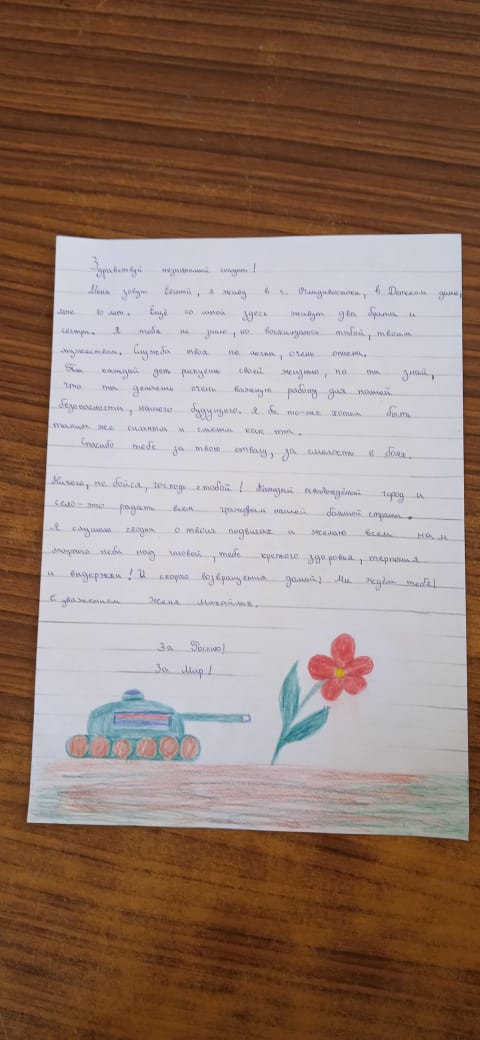 Здравствуй незнакомый солдат!
Меня зовут Евгений, я живу в г. Владивостоке, в Детском доме,
мне 10 лет. Ещё со мной здесь живут два брата и
сестра. Я тебя не знаю, но восхищаюсь тобой, твоим
мужеством. Служба твоя не легка, очень опасна.
Ты каждый день рискуешь своей жизнью, но ты знай,
что ты делаешь очень важную работу для нашей
безопасности, нашего будущего. Я бы то-же хотел быть
таким же сильным и смелым как ты.
Спасибо тебе за твою отвагу, за смелость в боях.
Ничего, не бойся, господь с тобой! Каждый освобождёный город и
село-это радость всем граждан нашей большой страны.
Я слушаю сводки о твоих подвигах и желаю всем нам
мирного неба над головой, тебе крепкого здоровья, терпения
и выдержки! И скорого возвращения домой! Мы ждём тебя!
С уважением Женя Михайлов.
За Россию!
За Мир!